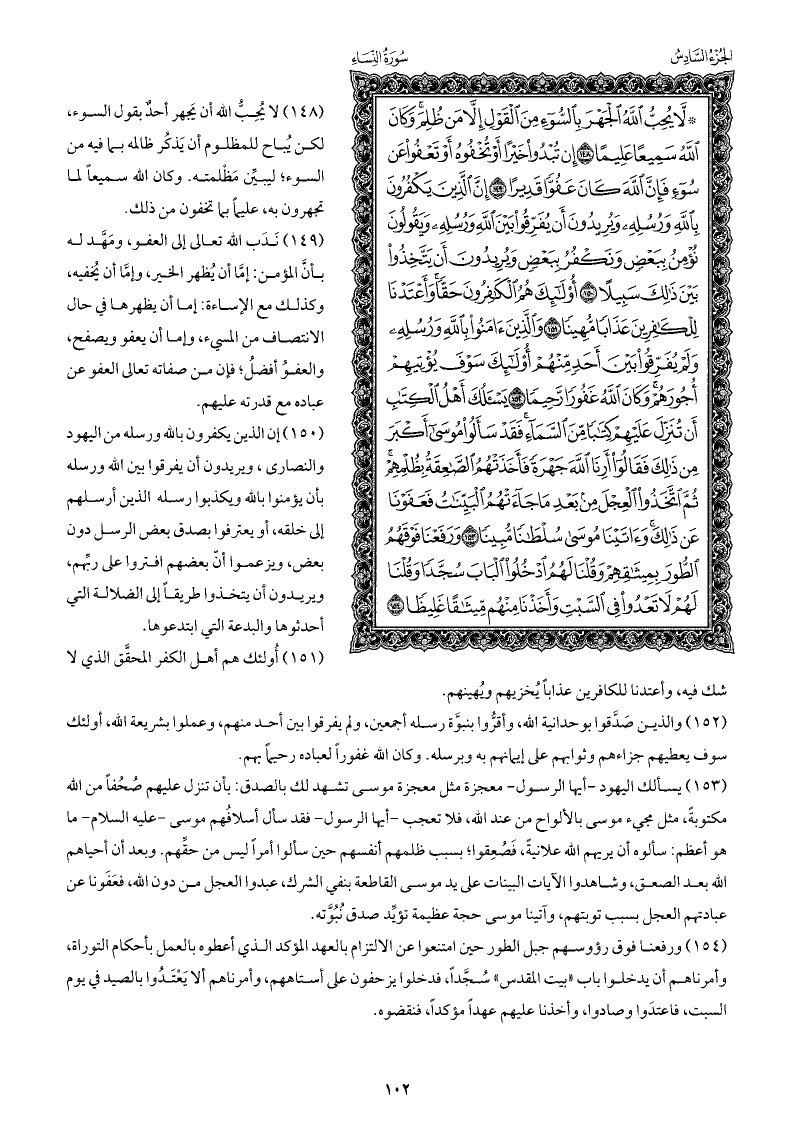 الجزء السادس
سورة النساء
۞ لَّا يُحِبُّ ٱللَّهُ ٱلۡجَهۡرَ بِٱلسُّوٓءِ مِنَ ٱلۡقَوۡلِ إِلَّا مَن ظُلِمَۚ وَكَانَ
ٱللَّهُ سَمِيعًا عَلِيمًا ١٤٨ إِن تُبۡدُواْ خَيۡرًا أَوۡ تُخۡفُوهُ أَوۡ تَعۡفُواْ عَن
سُوٓءٖ فَإِنَّ ٱللَّهَ كَانَ عَفُوّٗا قَدِيرًا ١٤٩ إِنَّ ٱلَّذِينَ يَكۡفُرُونَ
بِٱللَّهِ وَرُسُلِهِۦ وَيُرِيدُونَ أَن يُفَرِّقُواْ بَيۡنَ ٱللَّهِ وَرُسُلِهِۦ وَيَقُولُونَ
نُؤۡمِنُ بِبَعۡضٖ وَنَكۡفُرُ بِبَعۡضٖ وَيُرِيدُونَ أَن يَتَّخِذُواْ
بَيۡنَ ذَٰلِكَ سَبِيلًا ١٥٠ أُوْلَٰٓئِكَ هُمُ ٱلۡكَٰفِرُونَ حَقّٗاۚ وَأَعۡتَدۡنَا
لِلۡكَٰفِرِينَ عَذَابٗا مُّهِينٗا ١٥١ وَٱلَّذِينَ ءَامَنُواْ بِٱللَّهِ وَرُسُلِهِۦ
وَلَمۡ يُفَرِّقُواْ بَيۡنَ أَحَدٖ مِّنۡهُمۡ أُوْلَٰٓئِكَ سَوۡفَ يُؤۡتِيهِمۡ
أُجُورَهُمۡۚ وَكَانَ ٱللَّهُ غَفُورٗا رَّحِيمٗا ١٥٢ يَسۡـَٔلُكَ أَهۡلُ ٱلۡكِتَٰبِ
أَن تُنَزِّلَ عَلَيۡهِمۡ كِتَٰبٗا مِّنَ ٱلسَّمَآءِۚ فَقَدۡ سَأَلُواْ مُوسَىٰٓ أَكۡبَرَ
مِن ذَٰلِكَ فَقَالُوٓاْ أَرِنَا ٱللَّهَ جَهۡرَةٗ فَأَخَذَتۡهُمُ ٱلصَّٰعِقَةُ بِظُلۡمِهِمۡۚ
ثُمَّ ٱتَّخَذُواْ ٱلۡعِجۡلَ مِنۢ بَعۡدِ مَا جَآءَتۡهُمُ ٱلۡبَيِّنَٰتُ فَعَفَوۡنَا
عَن ذَٰلِكَۚ وَءَاتَيۡنَا مُوسَىٰ سُلۡطَٰنٗا مُّبِينٗا ١٥٣ وَرَفَعۡنَا فَوۡقَهُمُ
ٱلطُّورَ بِمِيثَٰقِهِمۡ وَقُلۡنَا لَهُمُ ٱدۡخُلُواْ ٱلۡبَابَ سُجَّدٗا وَقُلۡنَا
لَهُمۡ لَا تَعۡدُواْ فِي ٱلسَّبۡتِ وَأَخَذۡنَا مِنۡهُم مِّيثَٰقًا غَلِيظٗا ١٥٤
(١٤٨) لا يُحِبُّ الله أن يَجهر أحدٌ بقول السوء،
لكن يُباح للمظلوم أن يَذكُر ظالمه بما فيه من
السوء؛ ليبيِّن مَظْلمته. وكان الله سميعاً لما
تجهرون به، عليماً بما تخفون من ذلك.
(١٤٩) نَدَب الله تعالى إلى العفو، ومَهَّد له
بأنَّ المؤمن: إمَّا أن يُظهر الخير، وإمَّا أن يُخفيه،
وكذلك مع الإساءة: إما أن يظهرها في حال
الانتصاف من المسيء، وإما أن يعفو ويصفح،
والعفوُ أفضلُ؛ فإن من صفاته تعالى العفو عن
عباده مع قدرته عليهم.
(١٥٠) إن الذين يكفرون بالله ورسله من اليهود
والنصارى ، ويريدون أن يفرقوا بين الله ورسله
بأن يؤمنوا بالله ويكذبوا رسله الذين أرسلهم
إلى خلقه، أو يعترفوا بصدق بعض الرسل دون
بعض، ويزعموا أنّ بعضهم افتروا على ربِّهم،
ويريدون أن يتخذوا طريقاً إلى الضلالة التي
أحدثوها والبدعة التي ابتدعوها.
(١٥١) أُولئك هم أهل الكفر المحقَّق الذي لا
شك فيه، وأعتدنا للكافرين عذاباً يُخزيهم ويُهينهم.
(١٥٢) والذين صَدَّقوا بوحدانية الله، وأقرُّوا بنبوَّة رسله أجمعين، ولم يفرقوا بين أحد منهم، وعملوا بشريعة الله، أولئك
سوف يعطيهم جزاءهم وثوابهم على إيمانهم به وبرسله. وكان الله غفوراً لعباده رحيماً بهم.
(١٥٣) يسألك اليهود -أيها الرسول- معجزة مثل معجزة موسى تشهد لك بالصدق: بأن تنزل عليهم صُحُفاً من الله
مكتوبةً، مثل مجيء موسى بالألواح من عند الله، فلا تعجب -أيها الرسول- فقد سأل أسلافُهم موسى -عليه السلام- ما
هو أعظم: سألوه أن يريهم الله علانيةً، فَصُعِقوا؛ بسبب ظلمهم أنفسهم حين سألوا أمراً ليس من حقِّهم. وبعد أن أحياهم
الله بعد الصعق، وشاهدوا الآيات البينات على يد موسى القاطعة بنفي الشرك، عبدوا العجل من دون الله، فعَفَونا عن
عبادتهم العجل بسبب توبتهم، وآتينا موسى حجة عظيمة تؤيِّد صدق نُبُوَّته.
(١٥٤) ورفعنا فوق رؤوسهم جبل الطور حين امتنعوا عن الالتزام بالعهد المؤكد الذي أعطوه بالعمل بأحكام التوراة،
وأمرناهم أن يدخلوا باب «بيت المقدس» سُجَّداً، فدخلوا يزحفون على أستاههم، وأمرناهم ألا يَعْتَدُوا بالصيد في يوم
السبت، فاعتدَوا وصادوا، وأخذنا عليهم عهداً مؤكداً، فنقضوه.
١٠٢